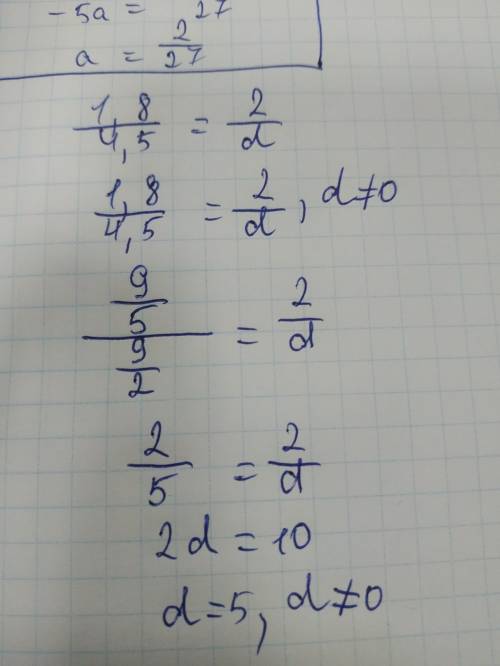 -5a = 27
a = 2/27
1,8/4,5 = 2/d
1,8/4,5 = 2/d, d≠0
9/5 / 9/2 = 2/d
2/5 = 2/d
2d = 10
d = 5, d≠0